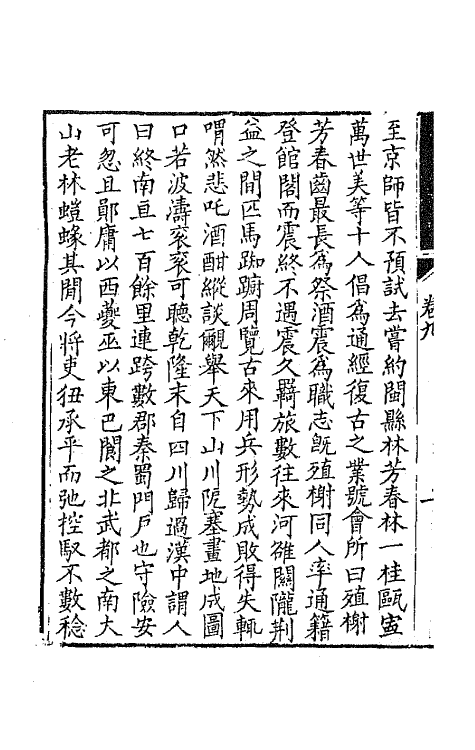 至京師皆不預試去嘗約閩縣林芳春林一桂甌寍
萬世美等十人倡爲通經復古之業號會所曰殖榭
芳春齒最長爲祭酒震爲職志旣殖榭同人率通籍
登館閣而震終不遇震久羇旅數往來河雒關隴荆
益之間匹馬踟躕周覽古來用兵形勢成敗得失輒
喟然悲吒酒酣縱談覼舉天下山川阨塞畫地成圖
口若波濤衮衮可聽乾隆末自四川歸過漢中謂人
曰終南亘七百餘里連跨數郡秦蜀門戸也守險安
可忽且鄖庸以西夔巫以東巴閬之北武都之南大
山老林螘蟓其閒今將吏狃承平而弛控馭不數稔
卷九
一